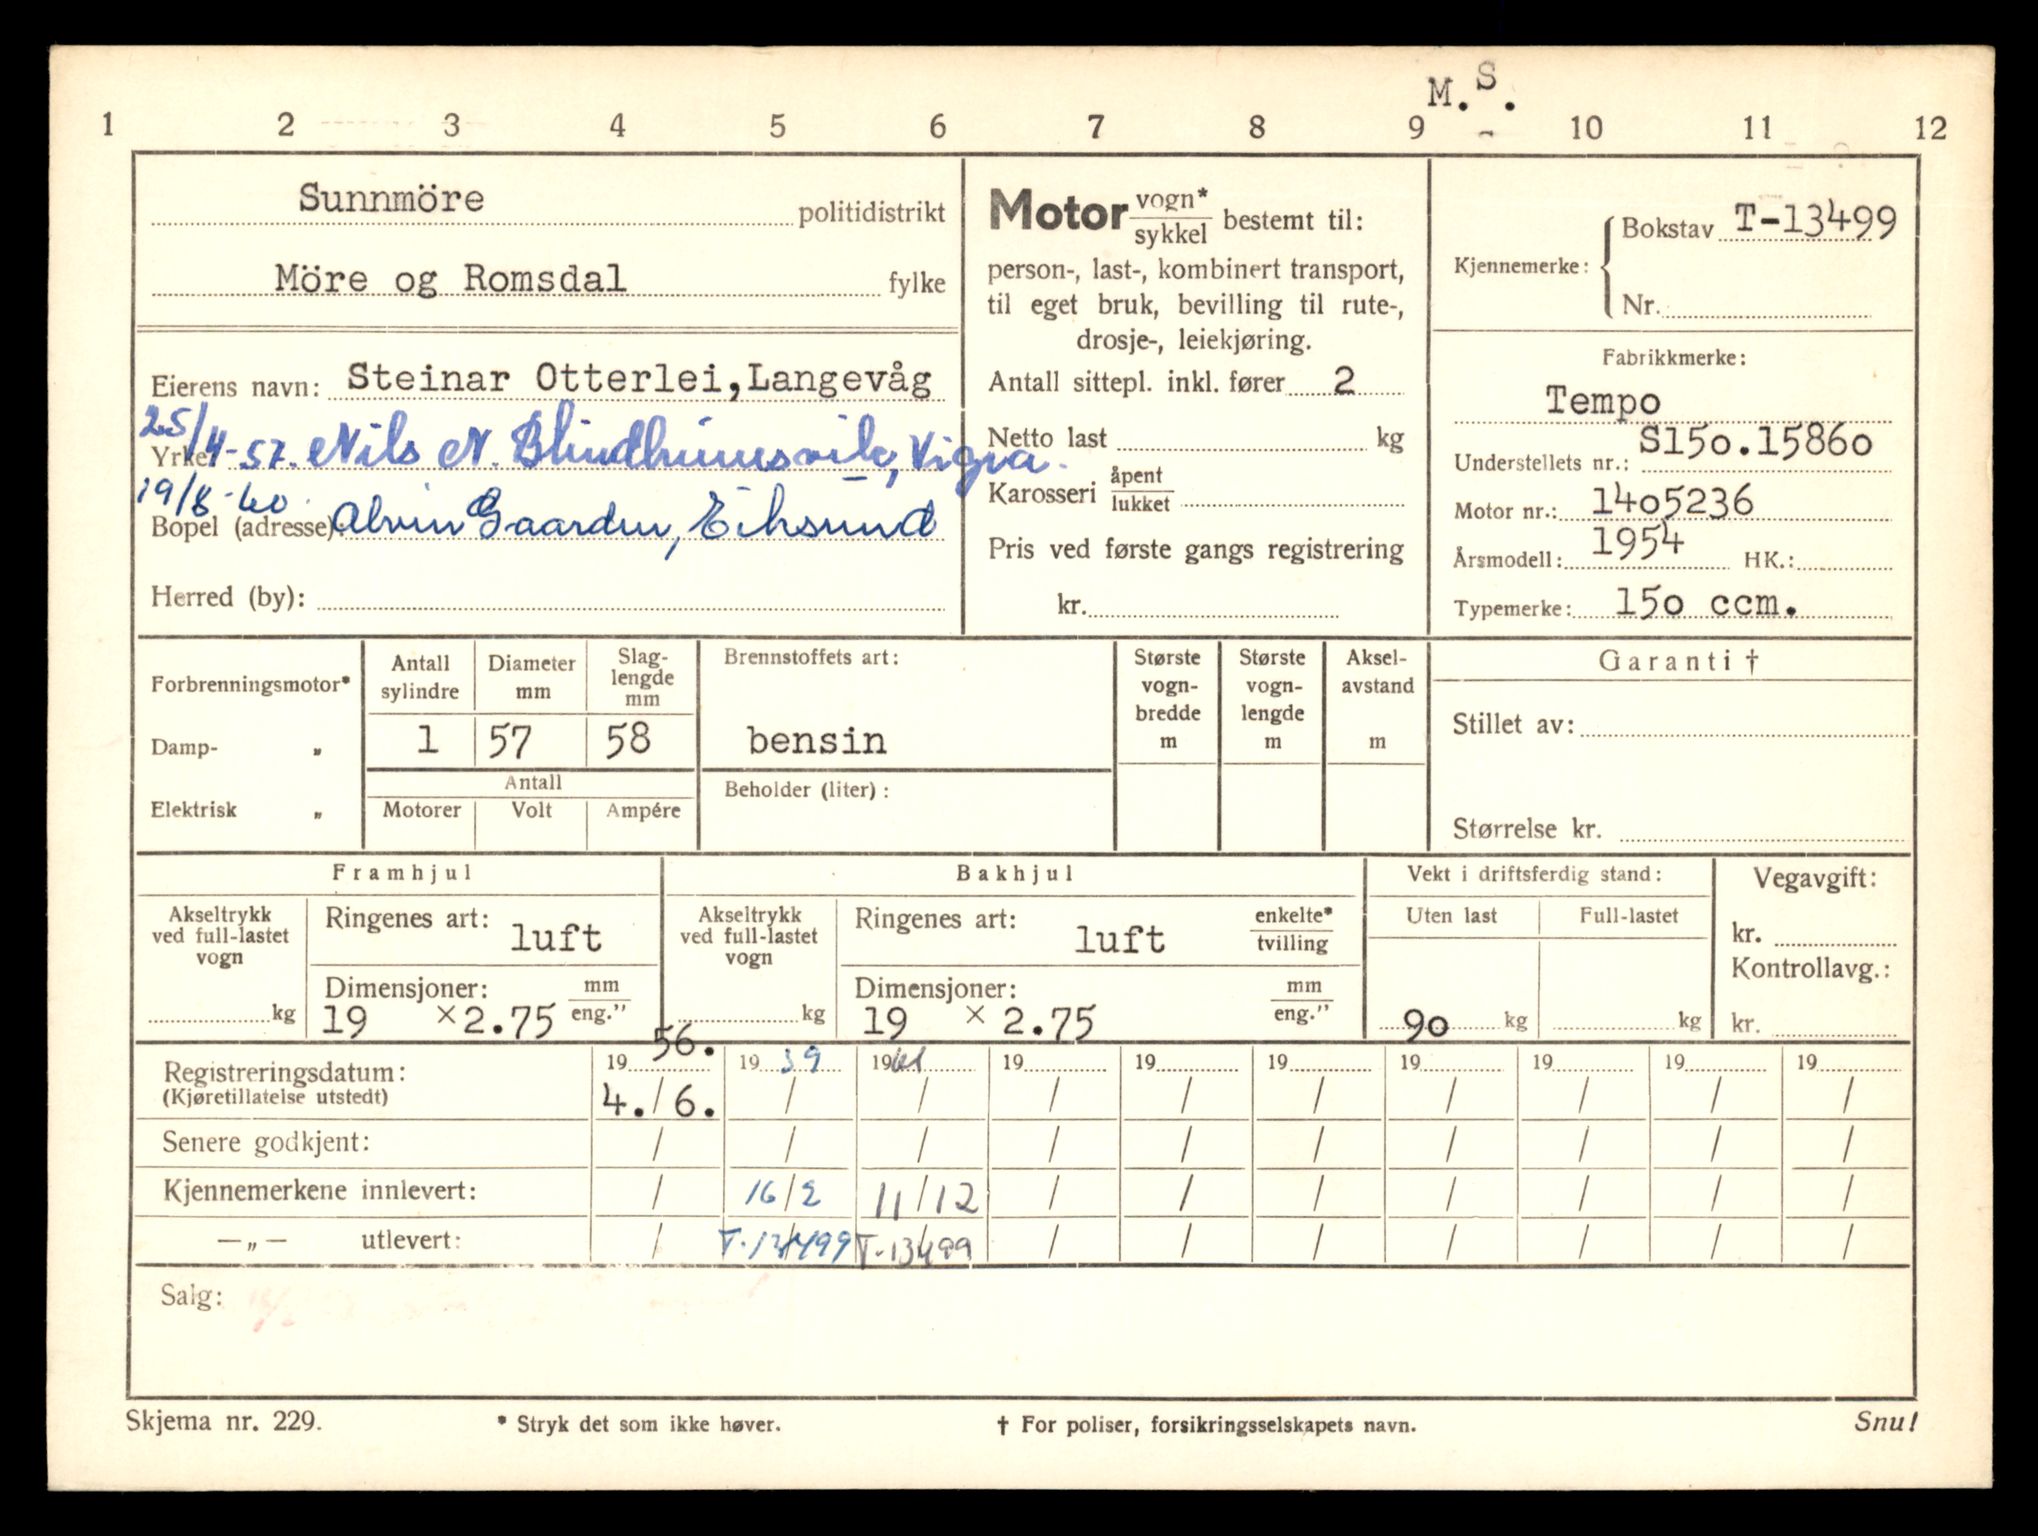 M.S.
1 2 3 4 5 6 7 8 9 10 11 12
Sunnmöre politidistrikt
Möre og Romsdal fylke
Eierens navn: Steinar Otterlei, Langevåg
25/4-57. Nils N. Blindhimsvik, Vigra.
Yrke:
19/8-60. Alvin Gaarden, Eiksund
Bopel (adresse):
Herred (by):
Motor vogn* / sykkel bestemt til:
person-, last-, kombinert transport,
til eget bruk, bevilling til rute-,
drosje-, leiekjøring.
Antall sittepl. inkl. fører 2
Netto last kg
Karosseri åpent / lukket
Pris ved første gangs registrering
kr.
Kjennemerke: Bokstav T-13499
Nr.
Fabrikkmerke:
Tempo
Understellets nr.: S150.15860
Motor nr.: 1405236
Årsmodell: 1954 HK.:
Typemerke: 150 ccm.
Forbrenningsmotor*
Damp- „
Elektrisk „
Antall sylindre Diameter mm Slag-lengde mm
1 57 58
Antall
Motorer Volt Ampére
Brennstoffets art:
bensin
Beholder (liter):
Største vogn-bredde m
Største vogn-lengde m
Aksel-avstand m
Garanti †
Stillet av:
Størrelse kr.
Framhjul
Akseltrykk ved full-lastet vogn
kg
Ringenes art: luft
Dimensjoner: mm / eng."
19 × 2.75
Bakhjul
Akseltrykk ved full-lastet vogn
kg
Ringenes art: luft enkelte* / tvilling
Dimensjoner: mm / eng."
19 × 2.75
Vekt i driftsferdig stand:
Uten last Full-lastet
90 kg kg
Vegavgift:
kr.
Kontrollavg.:
kr.
Registreringsdatum: 19 56. 19 59 19 61 19 19 19 19 19 19 19
(Kjøretillatelse utstedt) 4./6. / / / / / / / / /
Senere godkjent: / / / / / / / / / /
Kjennemerkene innlevert: / 16/2 11/12 / / / / / / /
—„— utlevert: / T-13499 T-13499 / / / / / / /
Salg:
Skjema nr. 229. * Stryk det som ikke høver. † For poliser, forsikringsselskapets navn. Snu!